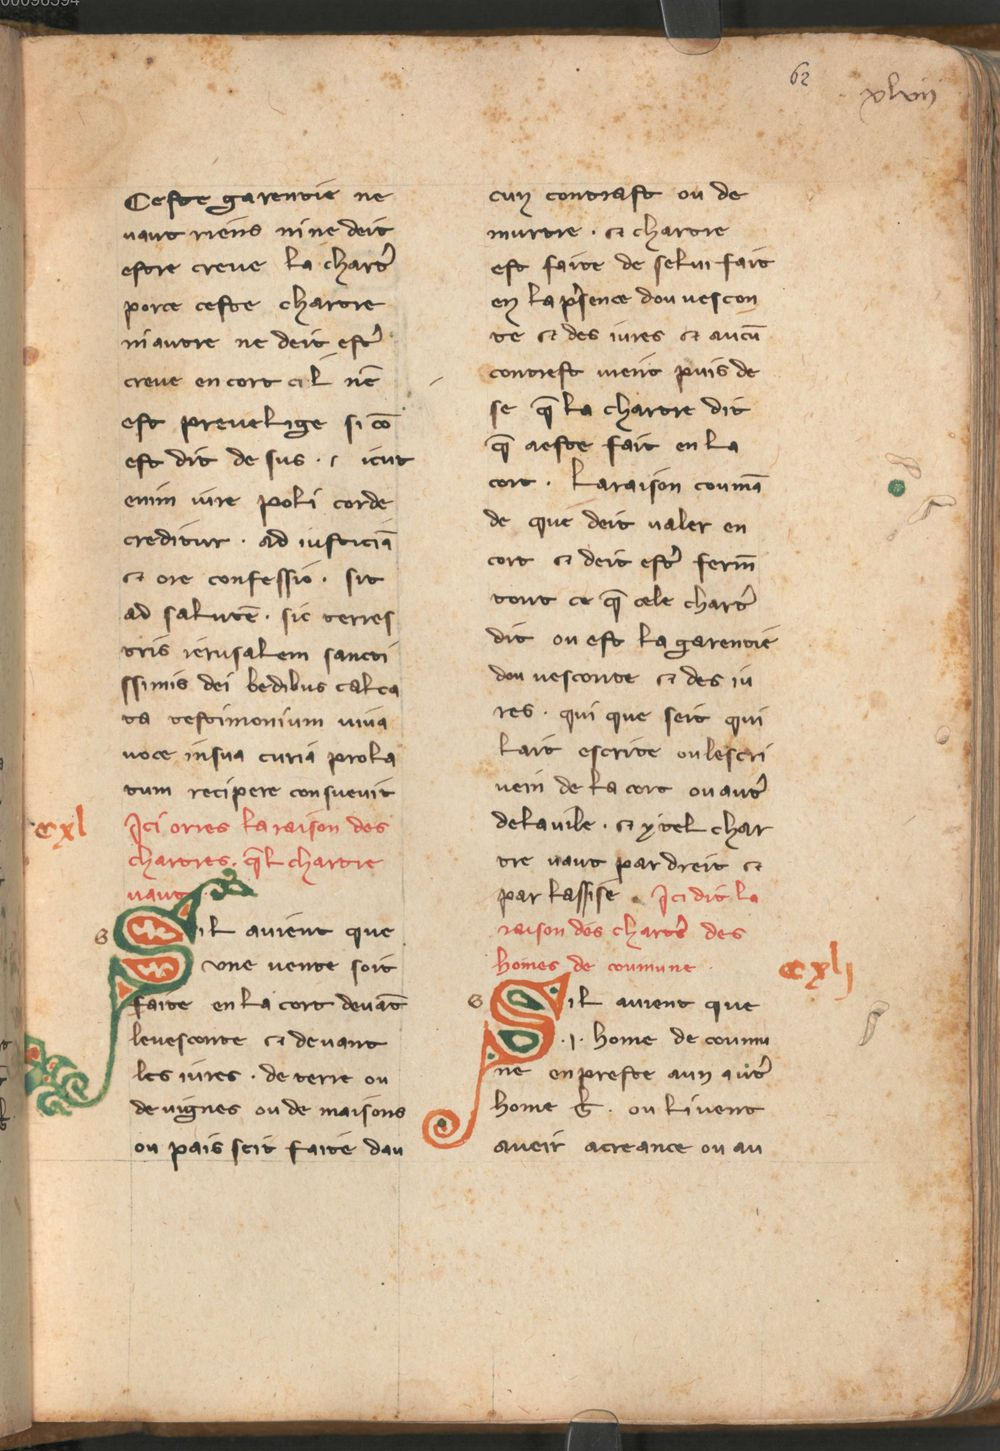 00096594
62
xlviij
Ceste garentie ne
vaut riens ni ne deit
estre creue la chart̓
porce ceste chartre
ni autre ne deit est̓
creue en cort ci l nē
est prevelige si cō
est dit de sus · sicut
enim iure poli corde
creditur · ad iusticiā
et ore confessio · sit
ad salutē · sic terres
tris ierusalem sancti
ssimis dei bedibus calca
ta testimonium viva
voce in sua curia prola
tum recipere consuevit
cxl
Ici orres la raison des
chartres · ql̄ chartre
vaut
s
Sil avient que
une vente soit
faite en la cort devāt
le vesconte et devant
les iures · de terre ou
de vignes ou de maisons
ou pais seit faite dau
cun contrast ou de
murtre · et chartre
est faite de selui fait
en la p̓sence dou vescon
te et des iures et aucū
contrest vient puis de
se q̄ la chartre dit
q̄ aeste fait en la
cort · la raison coumā
de que deit valer en
cort et deit est̓ ferm̄
tout ce q̄ cele chart̓
dit ou est la garentie
dou vesconte et des iu
res · qui que seit qui
lait escrite ou lescri
vein de la cort ou aut̓
de la vile · et ytel char
tre vaut par dreit et
par lassise · Ici dit la
raison des chart̓ des
homes de coumune
cxlj
s
Sil avient que
·i· home de coumu
ne en preste a un aut̓
home ou li vent
aveir acreance ou au